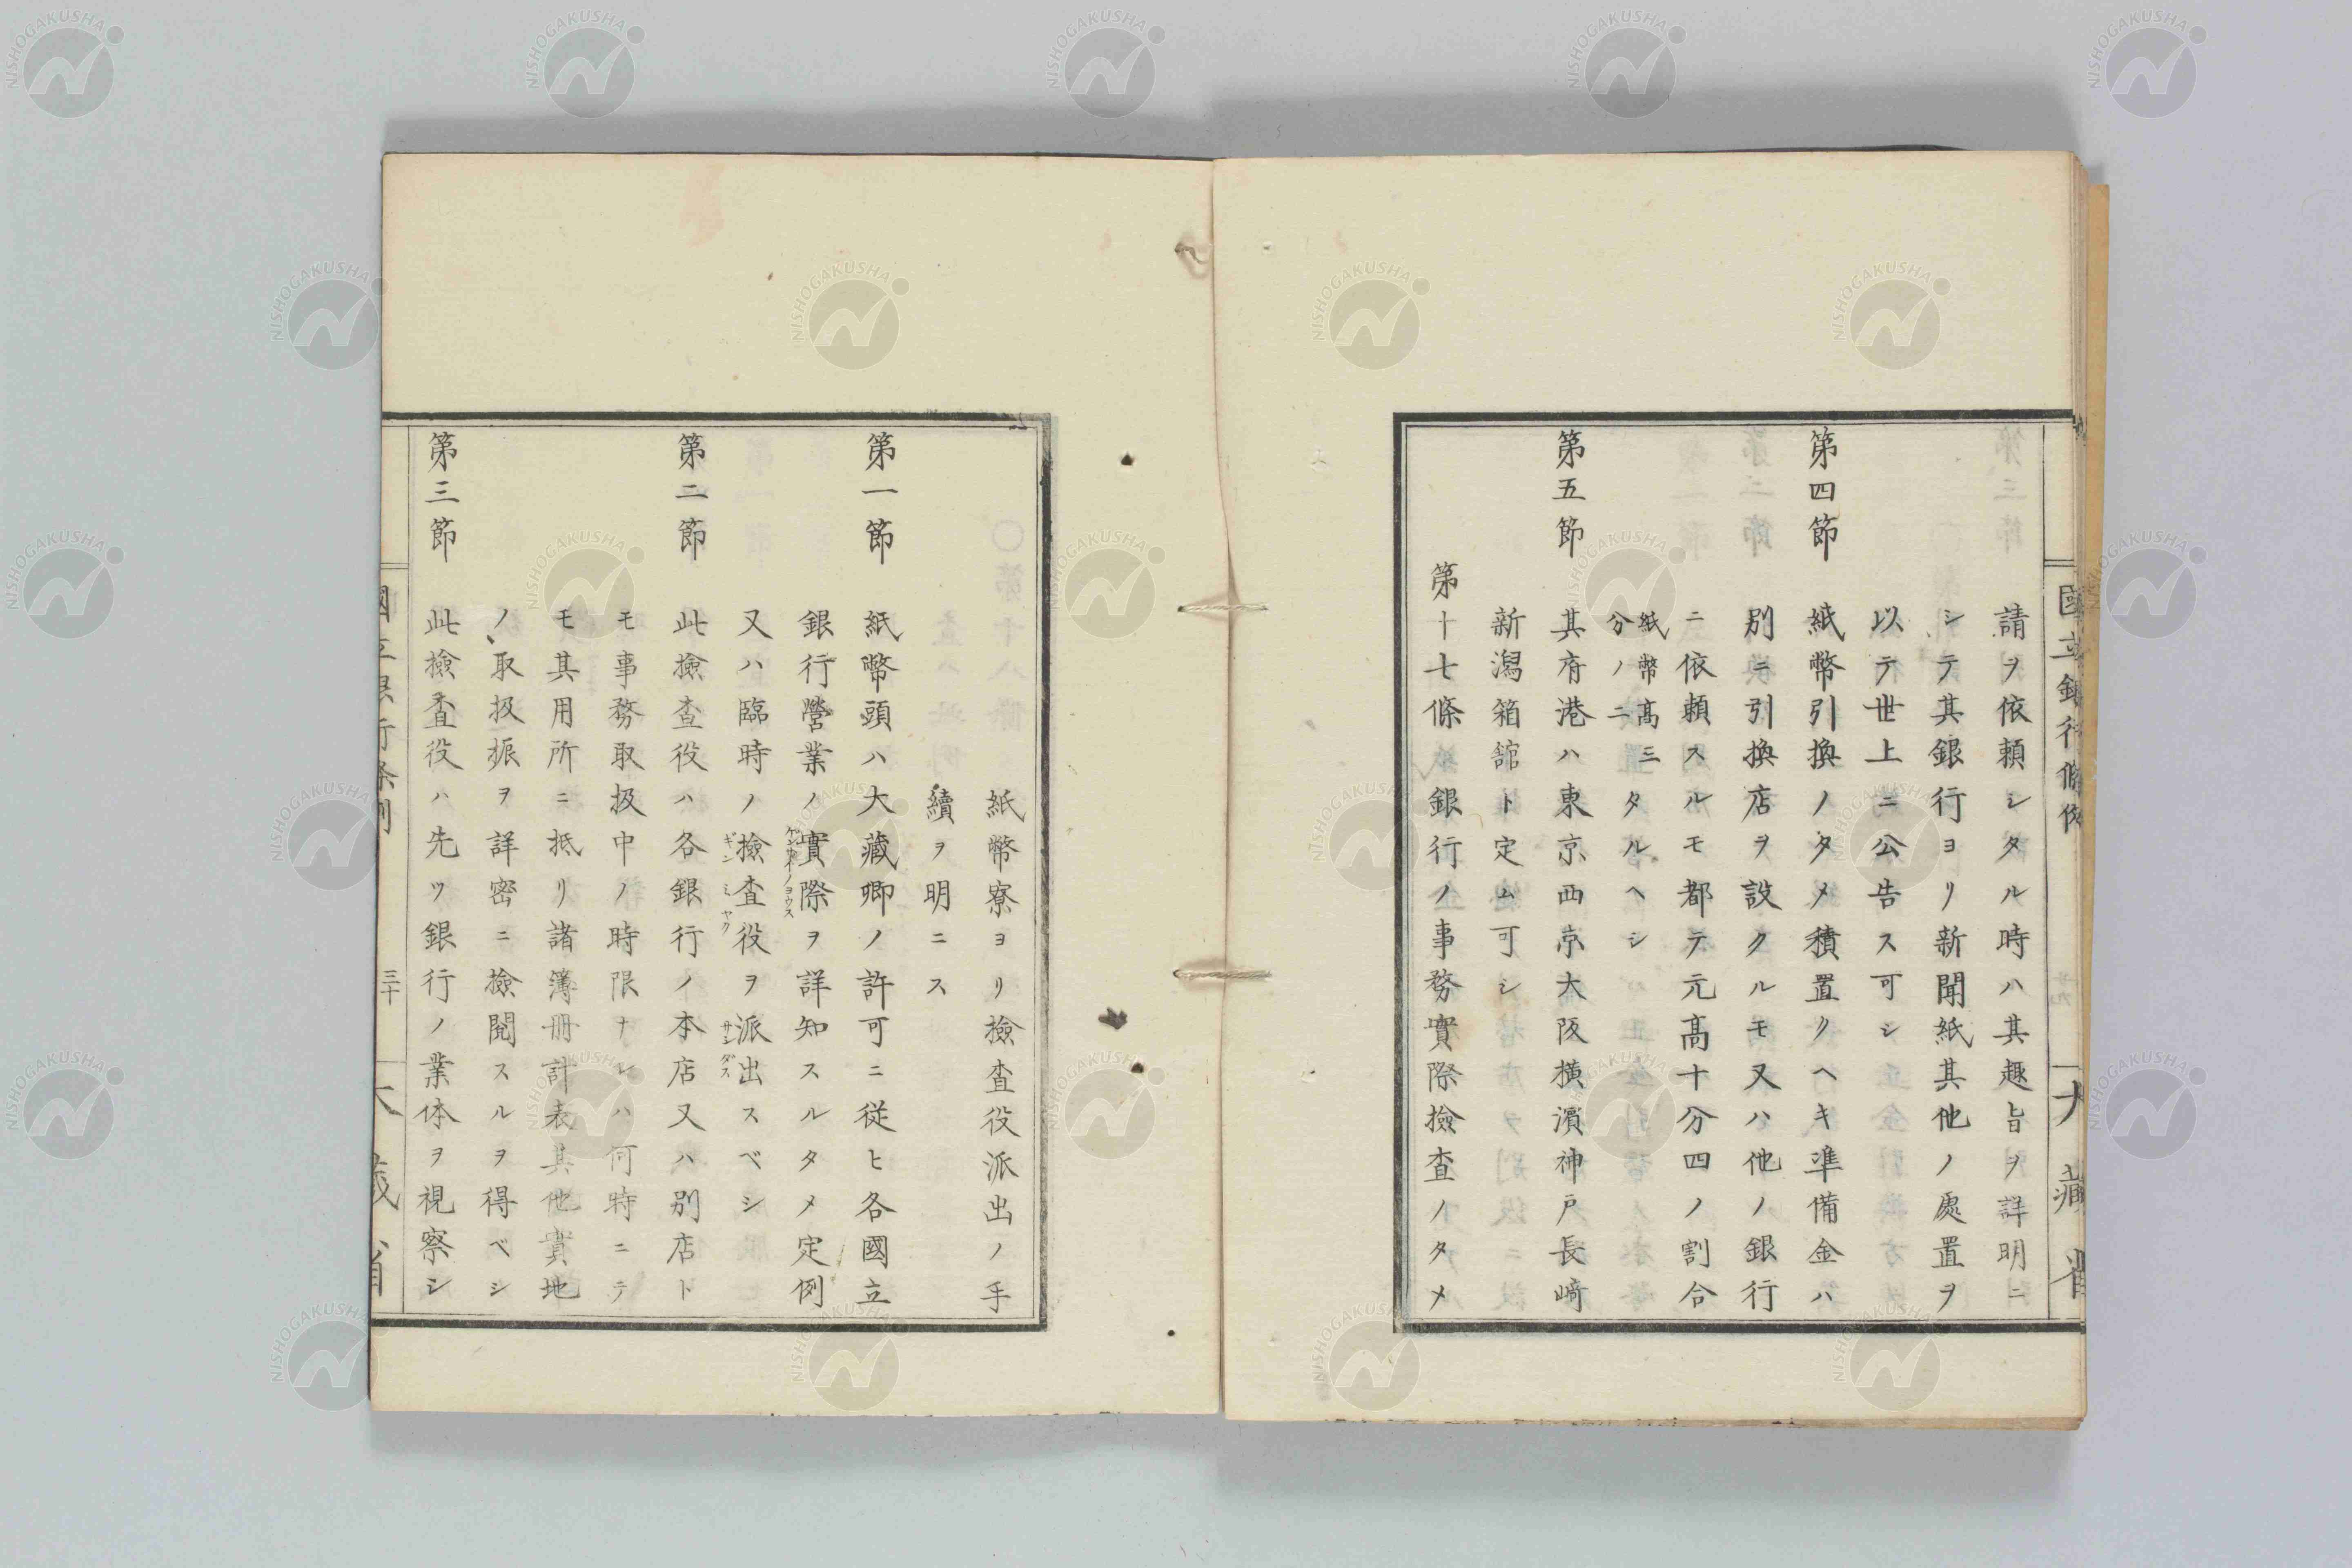 國立銀行條例
大藏省
請ヲ依頼シタル時ハ其趣旨ヲ詳明ニ
シテ其銀行ヨリ新聞紙其他ノ處置ヲ
以テ世上ニ公告ス可シ
第四節 紙幣引換ノタメ積置クヘキ準備金ハ
別ニ引換店ヲ設クルモ又ハ他ノ銀行
ニ依頼スルモ都テ元高十分四ノ割合
紙幣高三
分ノ二
タルヘシ
第五節 其府港ハ東京西京大阪横濱神戸長﨑
新潟箱館ト定ム可シ
第十七條銀行ノ事務實際撿査ノタメ
紙幣寮ヨリ撿査役派出ノ手
續ヲ明ニス
第一節 紙幣頭ハ大藏卿ノ許可ニ従ヒ各國立
銀行營業ノ實際ヲ詳知スルタメ定例
又ハ臨時ノ撿査役ヲ派出スベシ
ギンミヤク
サシダス
第二節 此撿査役ハ各銀行ノ本店又ハ別店ト
モ事務取扱中ノ時限ナレハ何時ニテ
モ其用所ニ抵リ諸簿冊計表其他實地
ノ取扱振ヲ詳密ニ撿閲スルヲ得ベシ
第三節 此撿査役ハ先ツ銀行ノ業体ヲ視察シ
國立銀行条例
三十
大藏省
NISHOGAKUSHA